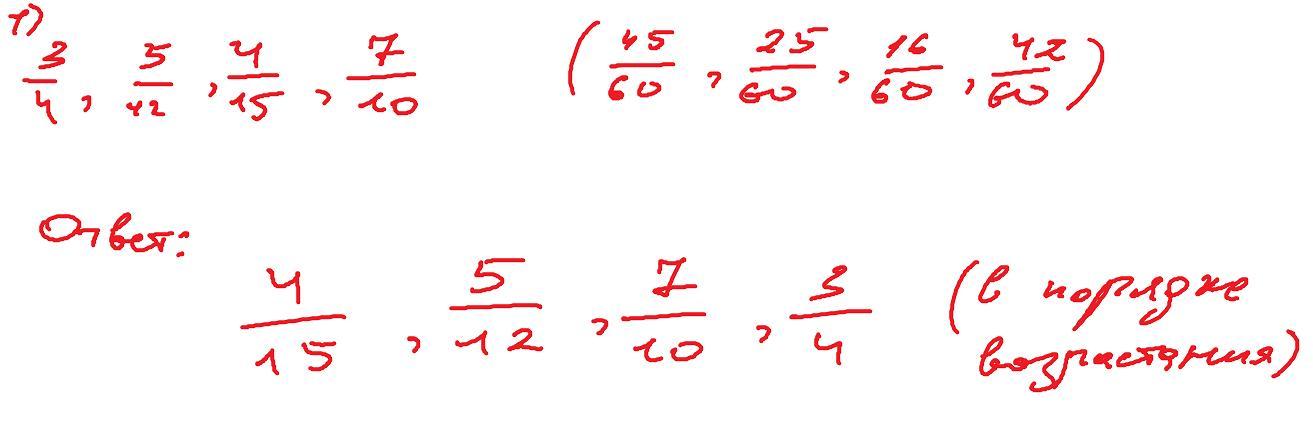 1)
3/4, 5/12, 4/15, 7/10 (45/60, 25/60, 16/60, 42/60)
Ответ:
4/15, 5/12, 7/10, 3/4 (в порядке
возрастания)